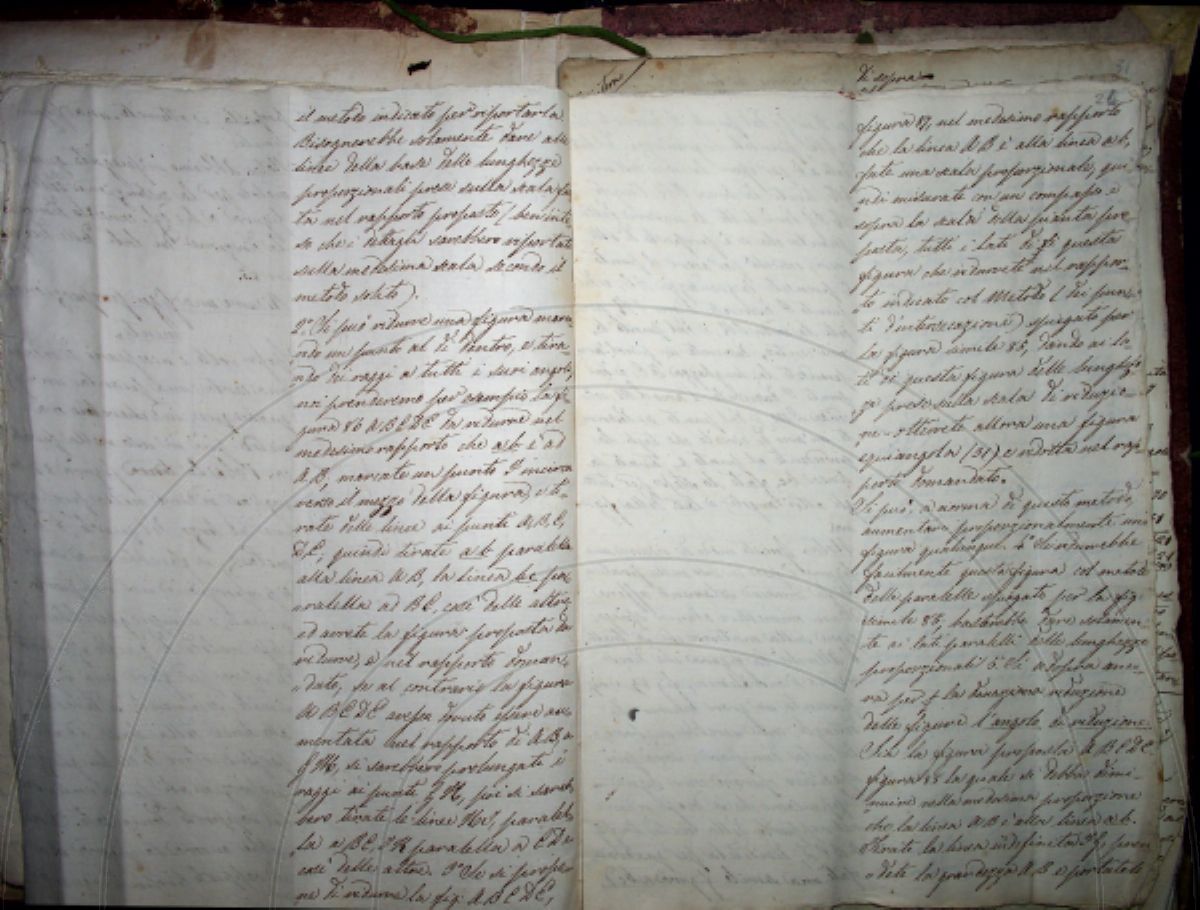 il metodo indicato per riportarla
Bisognerebbe solamente dare alle
linee della base delle lunghezze
proporzionali prese sulla scala fat
ta nel rapporto proposto (ben inte
so che i dettagli sarebbero riportati
sulla medesima scala secondo il
metodo solito).
2.° Si può ridurre una figura marca
ndo un punto al di dentro, e tira-
ndo dei raggi a tutti i suoi angoli,
noi prenderemo per esempio la fi
gura 86 ABCDE da ridurre nel
medesimo rapporto che ab è ad
AB, marcate un punto P incirca
verso il mezzo della figura, e ti-
rate delle linee ai punti A, B, C,
D, E, quindi tirate ab paralella
alla linea AB, la linea bc pa-
ralella ad BC, così delle altre,
ed avrete la figura proposta da
ridurre, e nel rapporto doman-
dato, se al contrario la figura
ABCDE avesse dovuto essere au-
mentata nel rapporto di AB, a
si sarebbero prolungati i
raggi ai punti poi si sareb
bero tirate le linee paralel
la a BC, paralella a CD e
così delle altre. 3.° Se si propo
ne di ridurre la fig: ABCDE,
di sopra
figura 87, nel medesimo rapporto
che la linea AB è alla linea ab,
fate una scala proporzionale, qui-
ndi misurate con un compasso e
sopra la scala della pianta pro-
posta, tutti i lati di questa
figura che ridurrete nel rappor-
to indicato col Metodo (dei pun-
ti d'intersecazione) spiegato per
la figura simile 85, dando ai la
ti di questa figura delle lunghez
ze prese sulla scala di riduzio-
ne otterrete allora una figura
equiangola (31) e ridotta nel rap-
porto domandato.
Si può, a norma di questo metodo,
aumentare proporzionalmente una
figura qualunque. Si ridurrebbe
facilmente questa figura col metodo
delle paralelle spiegato per la fig:
simile 85, basterebbe dare solamen-
te ai lati paralelli delle lunghezze
proporzionali Si adopra anco-
ra per la riduzione
delle figure l'angolo di riduzione
Sia la figura proposta ABCDE
figura 88 la quale si debba dimi-
nuire nella medesima proporzione
che la linea AB è alla linea ab.
Tirate la linea indefinita pren
dete la grandezza AB e portatela